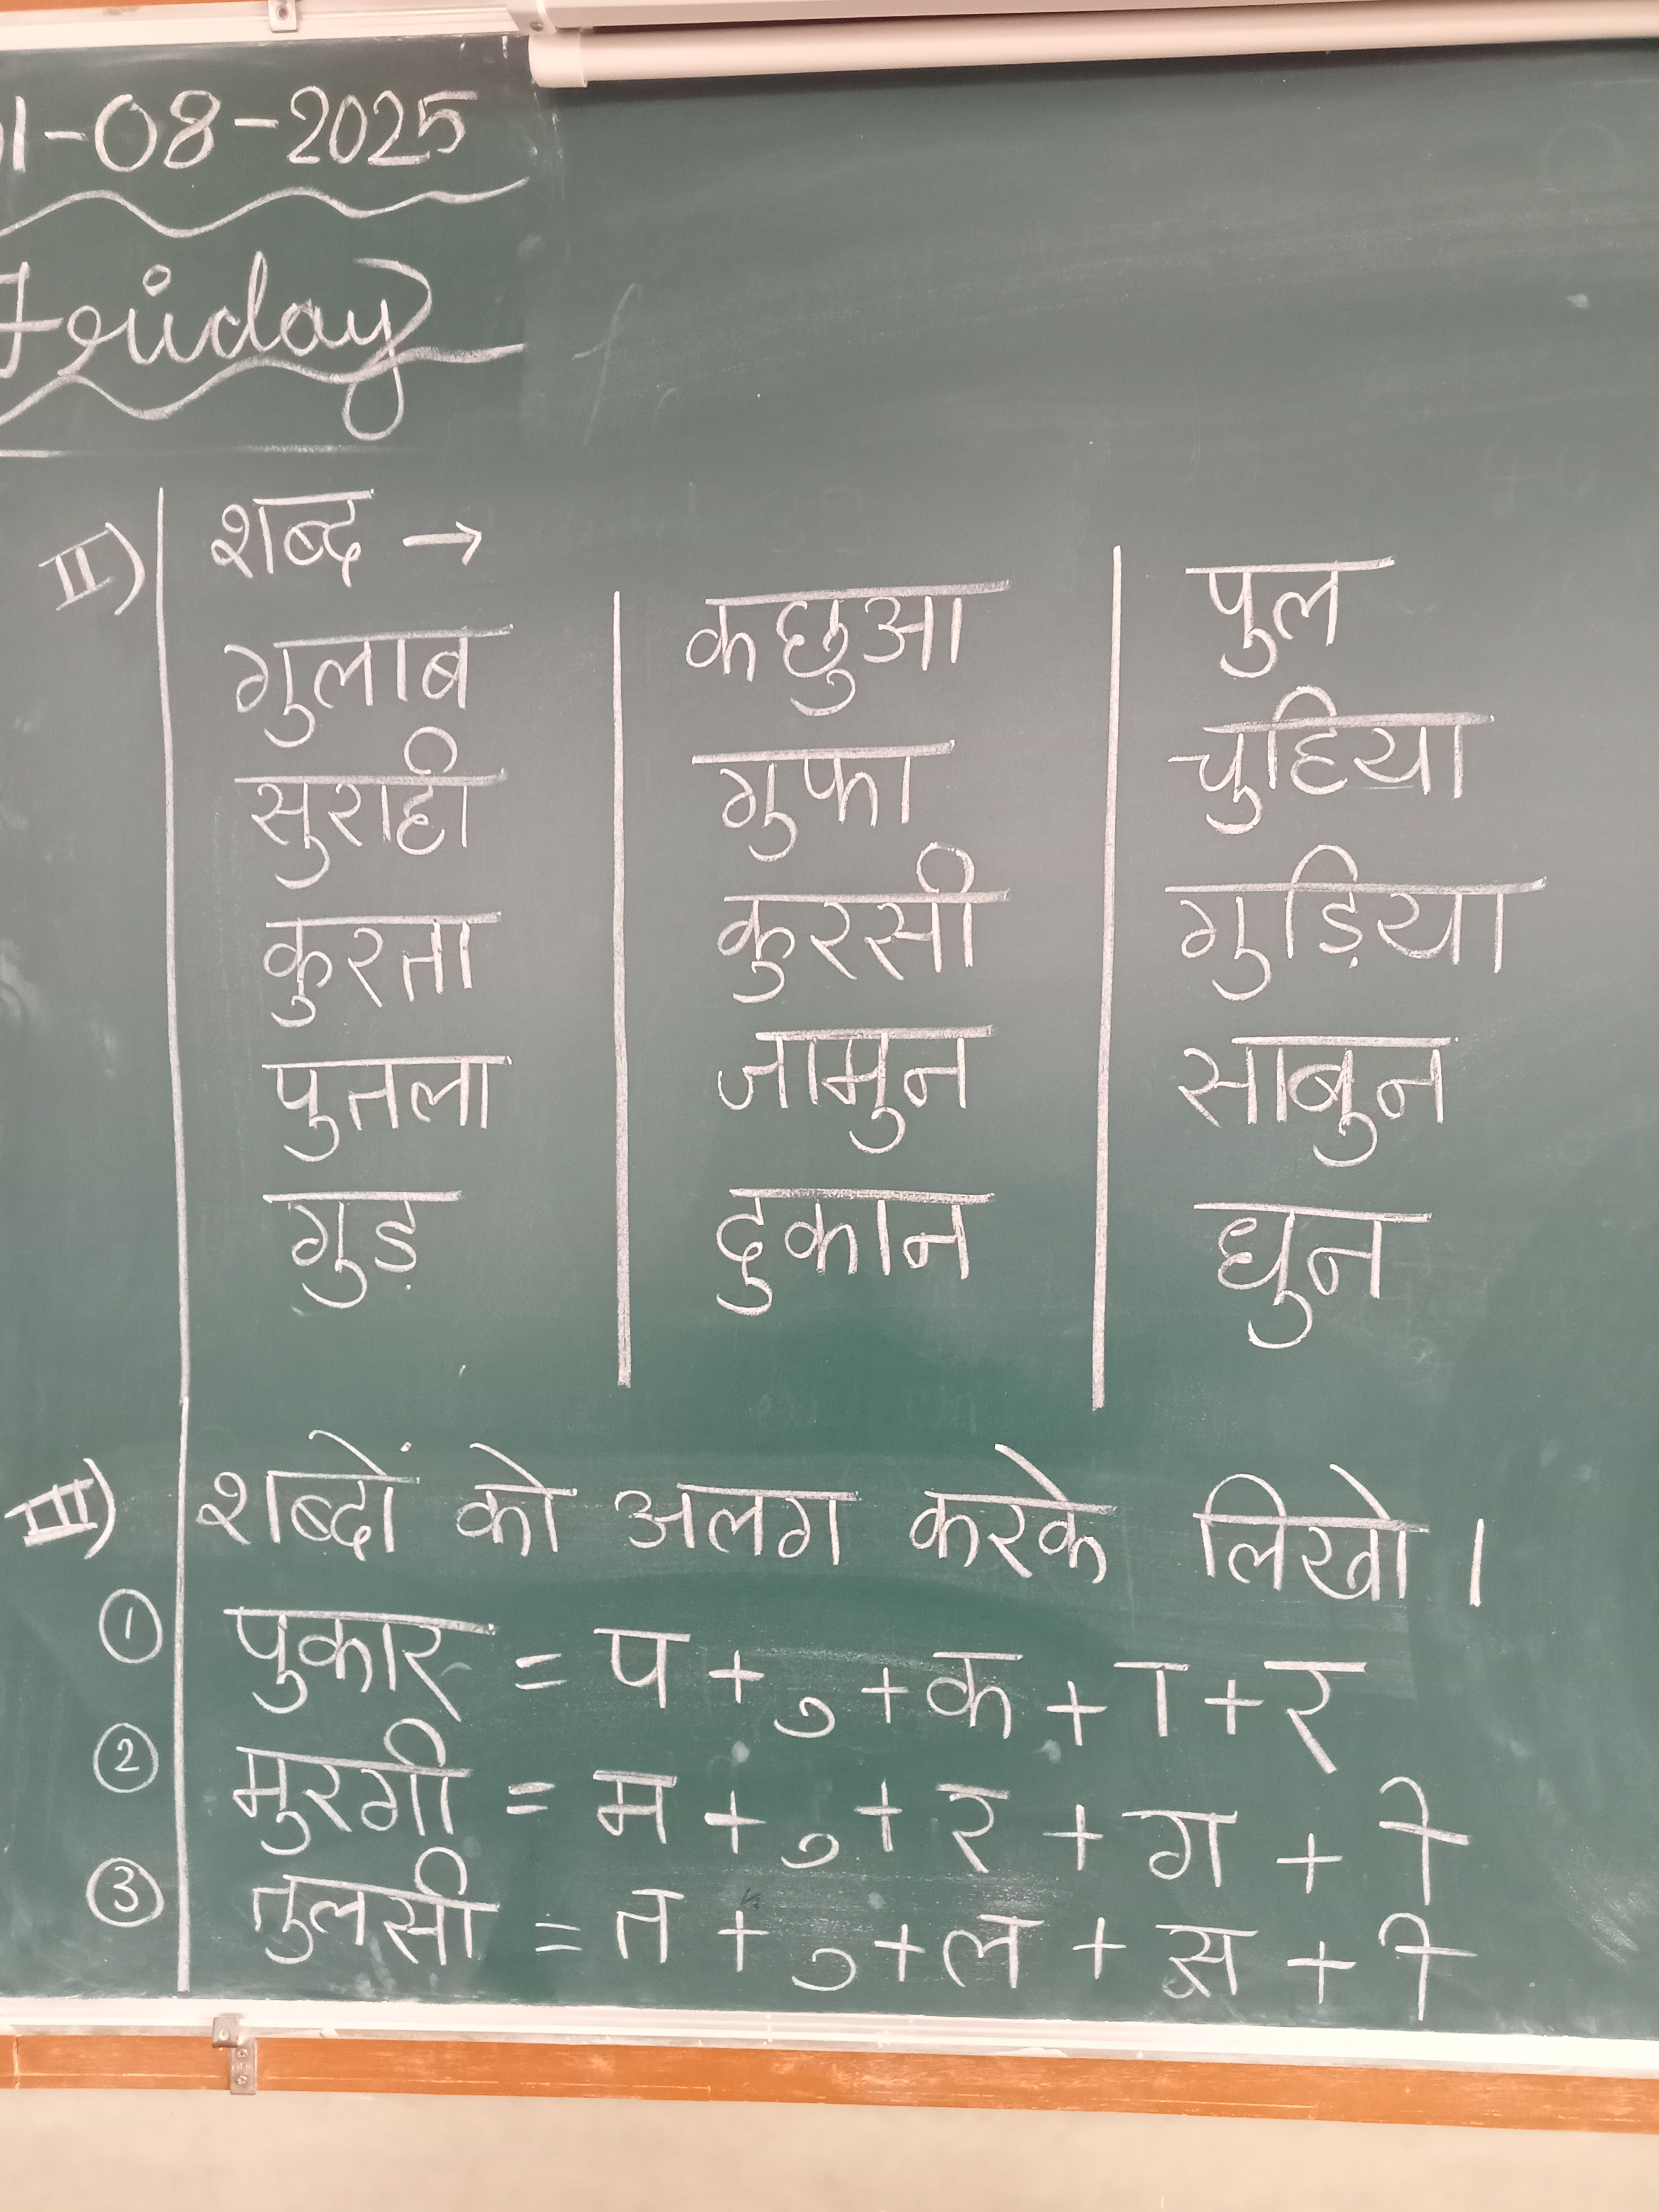 01-08-2025
Friday
II) शब्द →
गुलाब
सुराही
कुरता
पुतला
गुड़
कछुआ
गुफा
कुरसी
जामुन
दुकान
पुल
चुहिया
गुड़िया
साबुन
धुन
III) शब्दों को अलग करके लिखो ।
① पुकार = प + ु + क + ा + र
② मुरगी = म + ु + र + ग + ी
③ तुलसी = त + ु + ल + स + ी